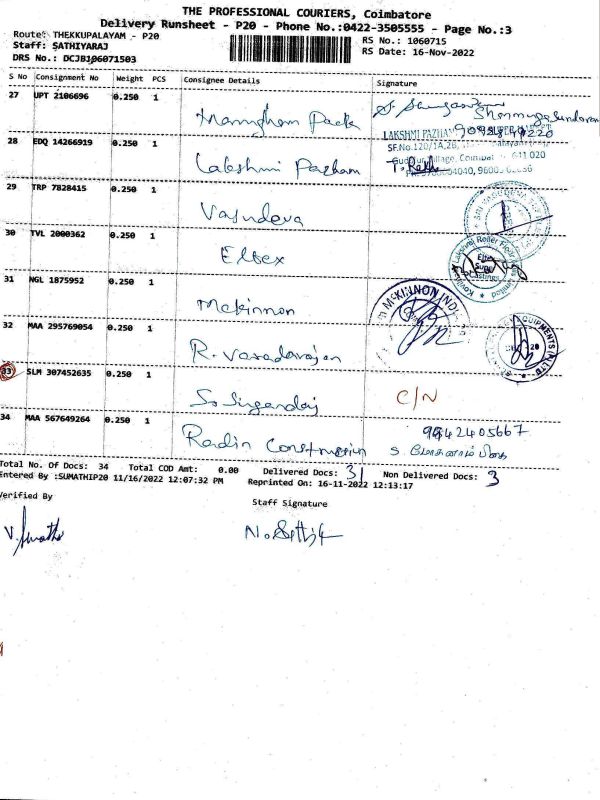 THE PROFESSIONAL COURIERS, Coimbatore
Delivery Runsheet - P20 - Phone No.:0422-3505555 - Page No.:3
Route: THEKKUPALAYAM - P20
RS No.: 1060715
Staff: SATHIYARAJ
RS Date: 16-Nov-2022
DRS No.: DCJB106071503
S No Consignment No Weight PCS Consignee Details Signature
27 UPT 2106696 0.250 1
28 EDQ 14266919 0.250 1 Lakshmi
LAKSHMI
SF.No.120/1A,2B,
641 020
29 TRP 7828415 0.250 1 Vasudeva
30 TVL 2000362 0.250 1 Eltex
31 NGL 1875952 0.250 1 Mckinnon
McKINNON
32 MAA 295769054 0.250 1 R. Varadarajan
33 SLM 307452635 0.250 1 C/N
34 MAA 567649264 0.250 1 Radin Construction
9942405667
Total No. Of Docs: 34 Total COD Amt: 0.00 Delivered Docs: 31 Non Delivered Docs: 3
Entered By :SUMATHIP20 11/16/2022 12:07:32 PM Reprinted On: 16-11-2022 12:13:17
Verified By
Staff Signature